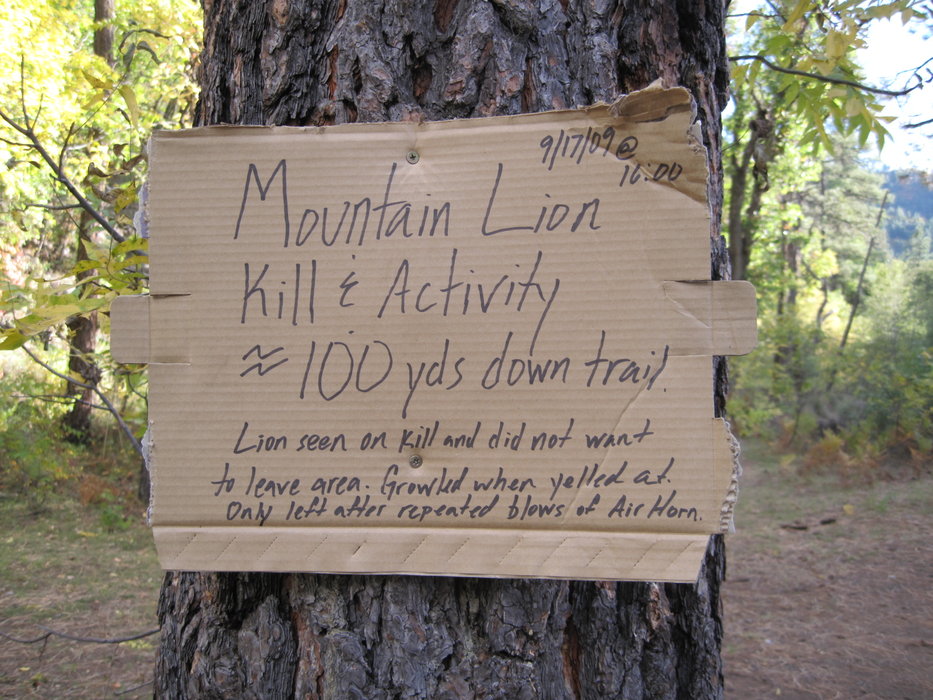 9/17/09 @
16:00
Mountain Lion
Kill & Activity
≈ 100 yds down trail.
Lion seen on kill and did not want
to leave area. Growled when yelled at.
Only left after repeated blows of Air Horn.